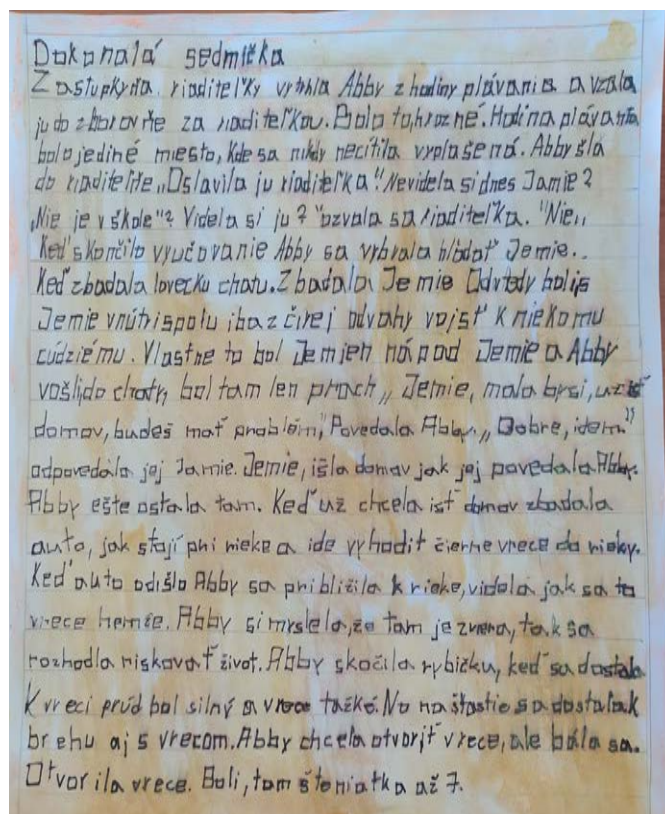 Dokonalá sedmička
Zástupkyňa riaditeľky vytiahla Abby z hodiny plávania a vzala
ju do zborovňe za riaditeľkou. Bolo to hrozné. Hodina plávania
bolo jediné miesto, kde sa nikdy necítila vyplašená. Abby šla
do riaditeľňe „Oslavila ju riaditeľka“. Nevidela si dnes Jamie?
„Nie je v škole“? Videla si ju? "ozvala sa riaditeľka. "Nie„
Keď skončilo vyučovanie Abby sa vybrala hľadať Jemie..
Keď zbadala loveckú chatu. Zbadala Jemie Odvtedy boli
Jemie vnútri spolu iba z čirej odvahy vojsť k niekomu
cudziému. Vlastne to bol Jemien nápad Jemie a Abby
vošli do chaty, bol tam len prach „ Jemie, mala by si, už ísť
domov, budeš mať problém," Povedala Abby. „ Dobre, idem."
odpovedala jej Jamie. Jemie, išla domov jak jej povedala Abby.
Abby ešte ostala tam. Keď už chcela isť domov zbadala
auto, jak stají pri rieke a ide vyhodit čierne vrece do rieky.
Keď auto odišlo Abby sa priblížila k rieke, videla jak sa to
vrece hemže. Abby si myslela, že tam je zviera, tak sa
rozhodla riskovať život. Abby skočila rybičku, keď sa dostala
K vreci prúd bol silný a vrece ťažké. No na štastie sa dostala k
brehu aj s vrecom. Abby chcela otvoriť vrece, ale bála sa.
Otvorila vrece. Boli, tam šteniatka až 7.